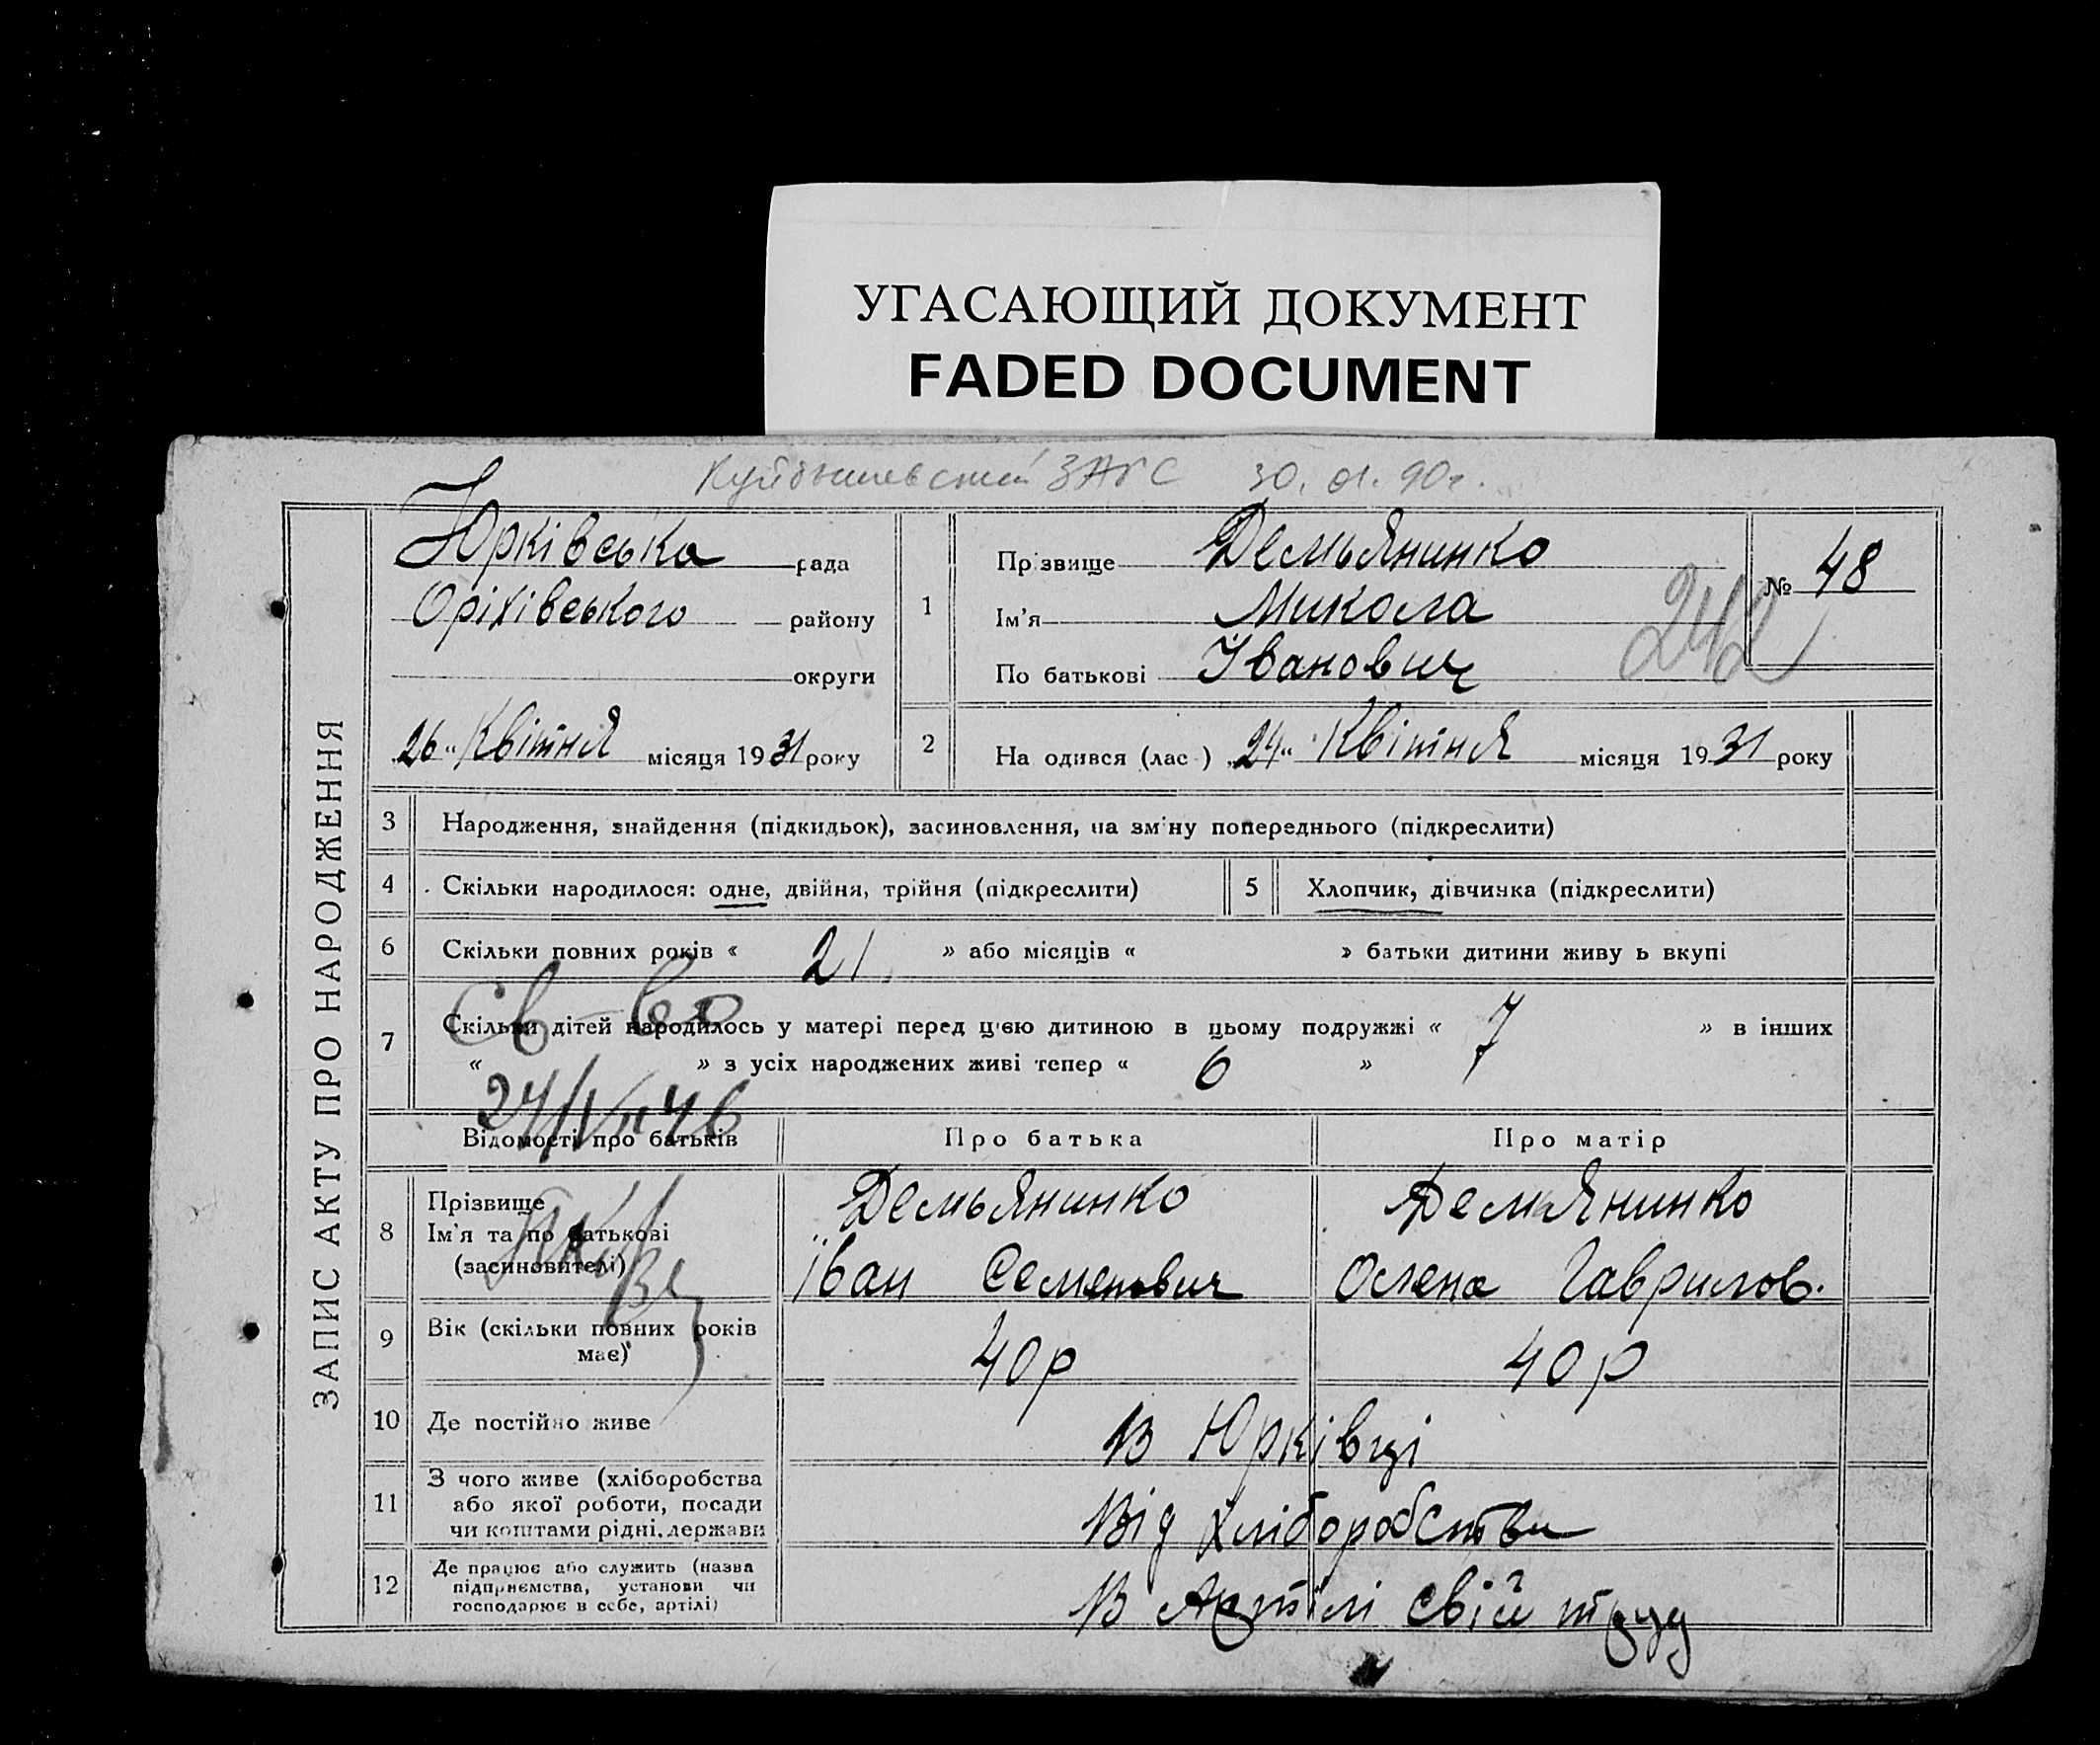 УГАСАЮЩИЙ ДОКУМЕНТ
FADED DOCUMENT
Куйбышевский ЗАГС 30.01.90г.
ЗАПИС АКТУ ПРО НАРОДЖЕННЯ
Юрківська рада
Оріхівського району
округи
26 " Квітня місяця 1931 року
1
Прізвище Демьянинко
Ім'я Микола
По батькові Іванович
№ 48
242
2
На одився (лас ) 24 " Квітня місяця 1931 року
3 Народження, знайдення (підкидьок), засиновлення, на зміну попереднього (підкреслити)
4 Скільки народилося: одне, двійня, трійня (підкреслити)
5 Хлопчик, дівчинка (підкреслити)
6 Скільки повних років « 21 » або місяців « » батьки дитини живу ь вкупі
Св-во
7 Скільки дітей народилось у матері перед цією дитиною в цьому подружжі « 7 » в інших
« » з усіх народжених живі тепер « 6 »
24/IV 46
Відомості про батьків
Про батька
Про матір
8 Прізвище
Ім'я та по батькові
(засиновителі)
Демьянинко
Іван Семенович
Демьянинко
Олена Гаврилов.
9 Вік (скільки повних років
має)
40р
40р
10 Де постійно живе
В Юрківці
11 З чого живе (хліборобства
або якої роботи, посади
чи коштами рідні, держави
Від хліборобства
12 Де працює або служить (назва
підприємства, установи чи
господарює в себе, артілі)
В Артілі свій труд